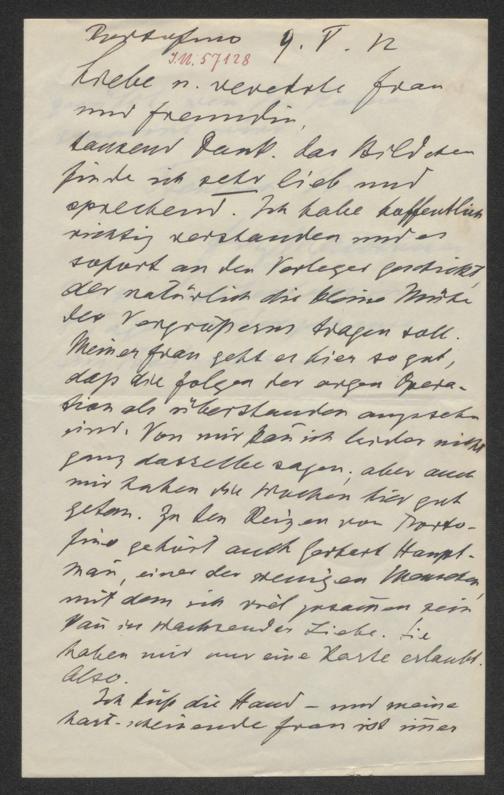 Portofino 9. V. 12
I.N. 57128
Liebe u. verehrte Frau
und Freundin,
tausend Dank. Das Bildchen
finde ich sehr lieb und
sprechend. Ich habe hoffentlich
richtig verstanden und es
sofort an den Verleger geschickt,
der natürlich die kleine Mühe
des Vergrößerns tragen soll.
Meiner Frau geht es hier so gut,
daß die Folgen der argen Opera-
tion als überstanden anzusehn
sind. Von mir kañ ich leider nicht
ganz dasselbe sagen; aber auch
mir haben die Wochen hier gut
getan. Zu den Reizen von Porto-
fino gehört auch Gerhart Haupt-
mañ, einer der wenigen Menschen,
mit dem ich viel zusam̄en sein
kañ in wachsender Liebe. Sie
haben mir nur eine Karte erlaubt.
Also.
Ich küß die Hand – und meine
hart-scheinende Frau ist im̄er